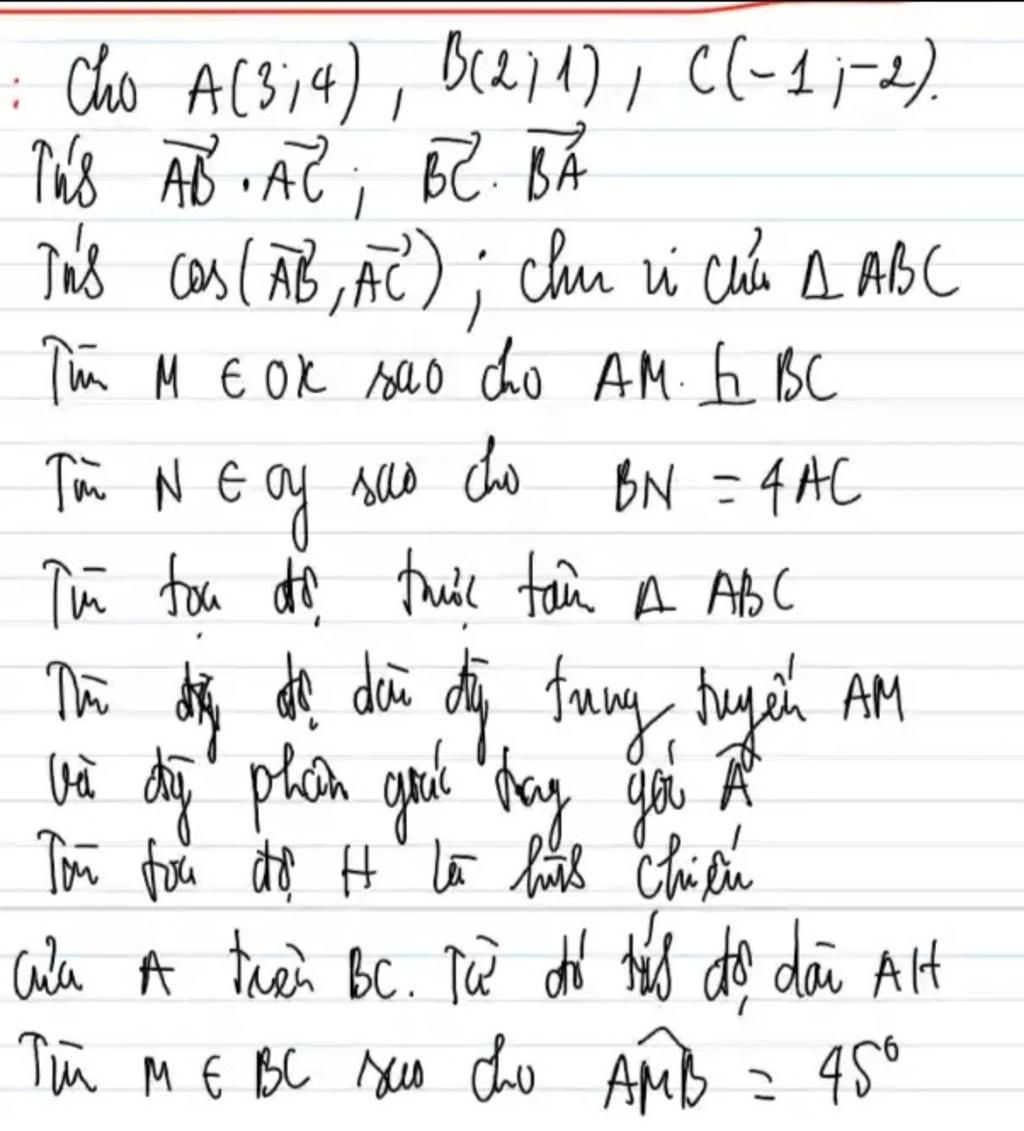 : Cho A(3;4), B(2;1), C(-1;-2).
Tính AB→ . AC→ ; BC→ . BA→
Tính cos(AB→, AC→) ; chu vi của Δ ABC
Tìm M ∈ Ox sao cho AM ⊥ BC
Tìm N ∈ Oy sao cho BN = 4 AC
Tìm tọa độ trực tâm Δ ABC
Tìm độ dài đg trung tuyến AM
và đg phân giác trong góc A
Tìm tọa độ H là hình chiếu
của A trên BC. Từ đó tính độ dài AH
Tìm M ∈ BC sao cho AMB = 45°